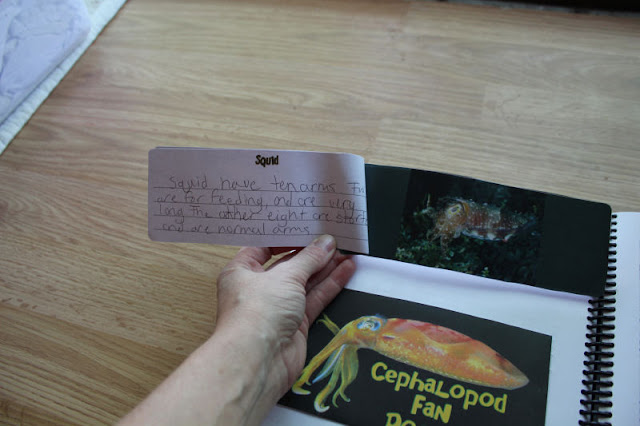 Squid
Squid have ten arms
are for feeding, and are very
long The other eight are
and are normal arms
Cephalopod
Fan